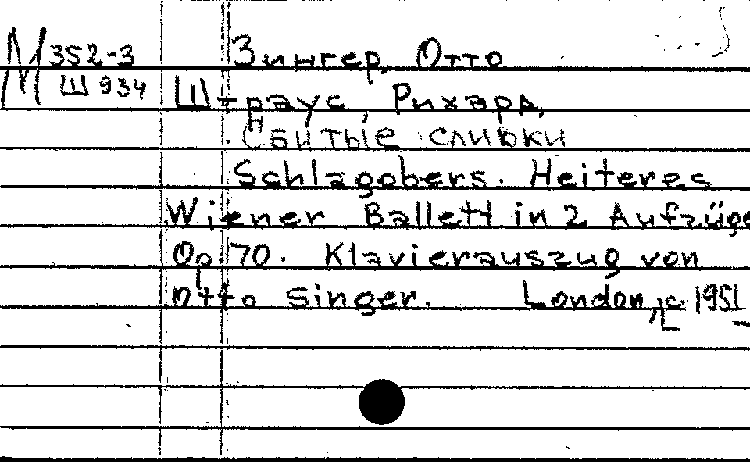 М 352-3 Зингер, Отто
Ш 934 Штраус, Рихард.
Сбитые сливки
Schlagobers. Heiteres
Wiener Ballett in 2 Aufzüge
Op. 70. Klavierauszug von
Otto Singer. London, c. 1951